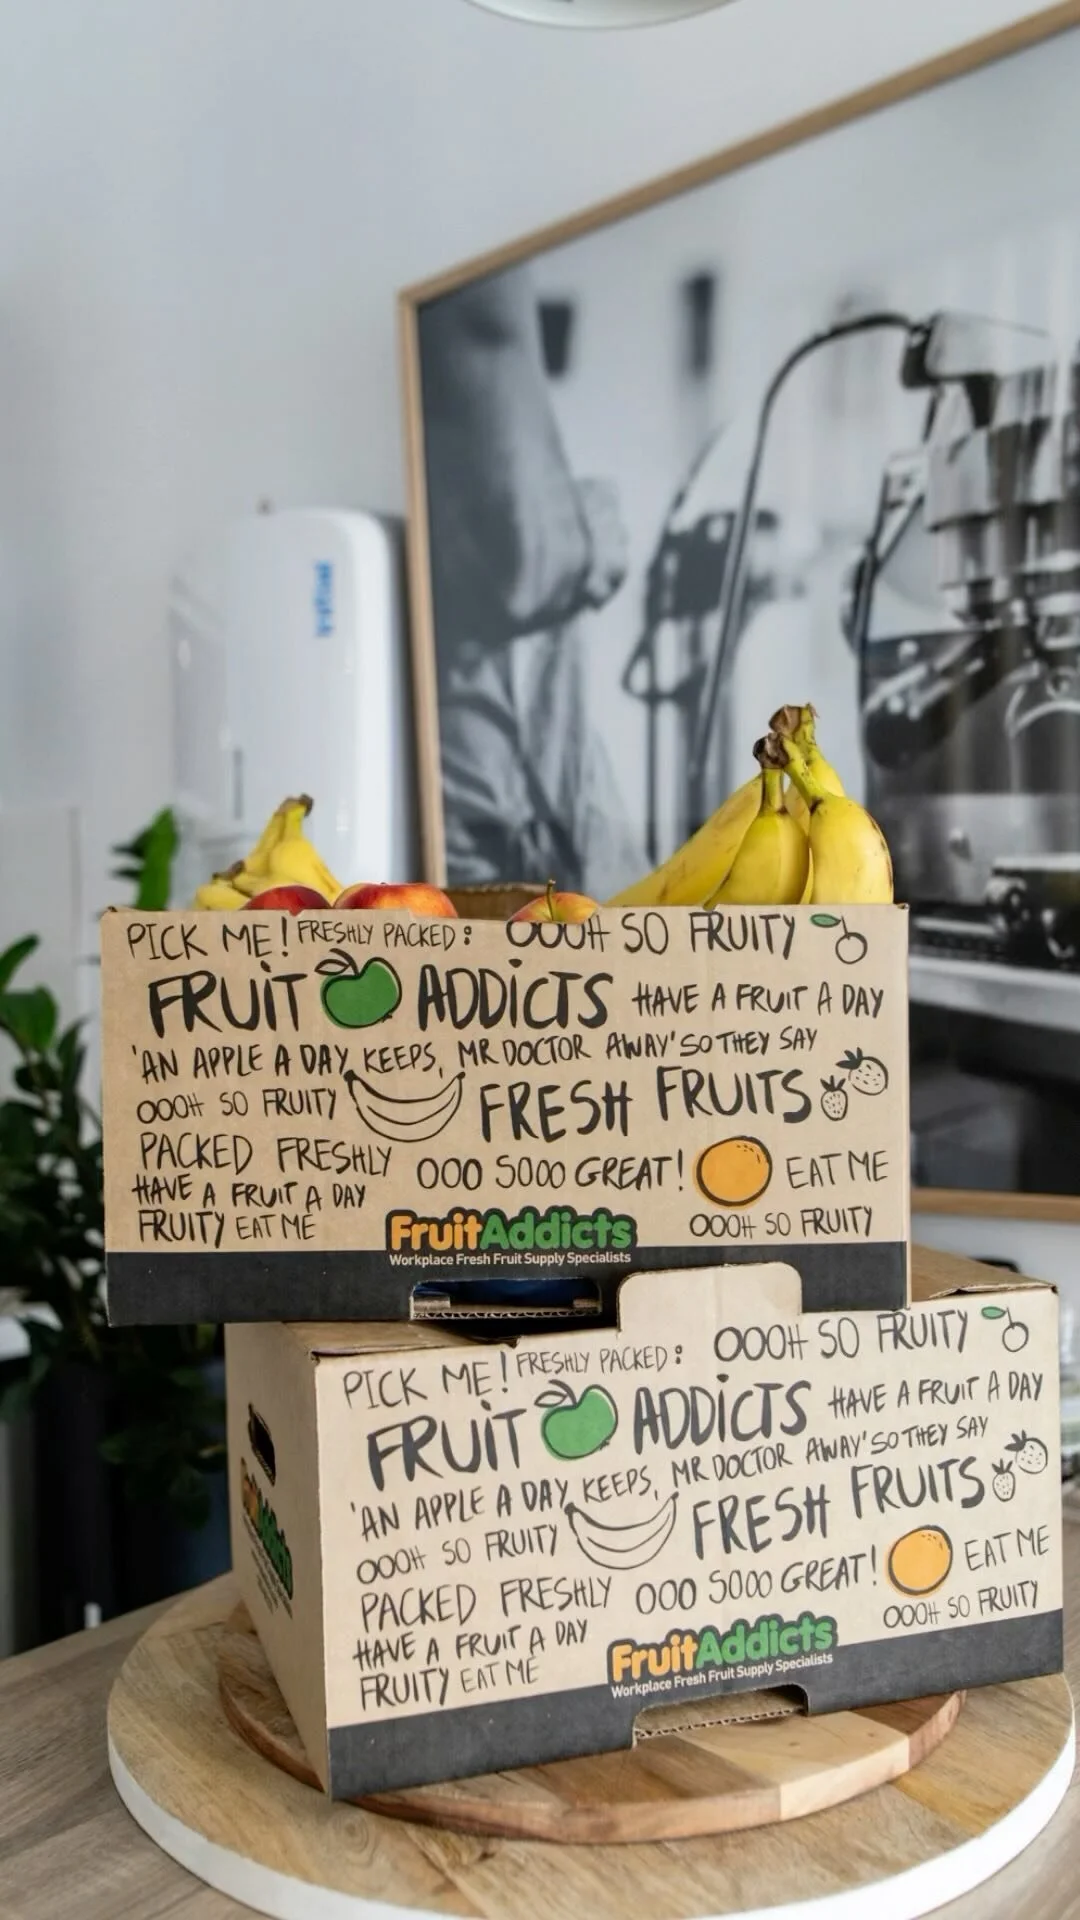 PICK ME! FRESHLY PACKED: OOOH SO FRUITY
FRUIT ADDICTS HAVE A FRUIT A DAY
'AN APPLE A DAY KEEPS, MR DOCTOR AWAY' SO THEY SAY
OOOH SO FRUITY FRESH FRUITS
PACKED FRESHLY OOO SOOO GREAT! EAT ME
HAVE A FRUIT A DAY
FRUITY EAT ME FruitAddicts OOOH SO FRUITY
Workplace Fresh Fruit Supply Specialists
PICK ME! FRESHLY PACKED: OOOH SO FRUITY
FRUIT ADDICTS HAVE A FRUIT A DAY
'AN APPLE A DAY KEEPS, MR DOCTOR AWAY' SO THEY SAY
OOOH SO FRUITY FRESH FRUITS
PACKED FRESHLY OOO SOOO GREAT! EAT ME
HAVE A FRUIT A DAY OOOH SO FRUITY
FRUITY EAT ME FruitAddicts
Workplace Fresh Fruit Supply Specialists
FruitAddicts